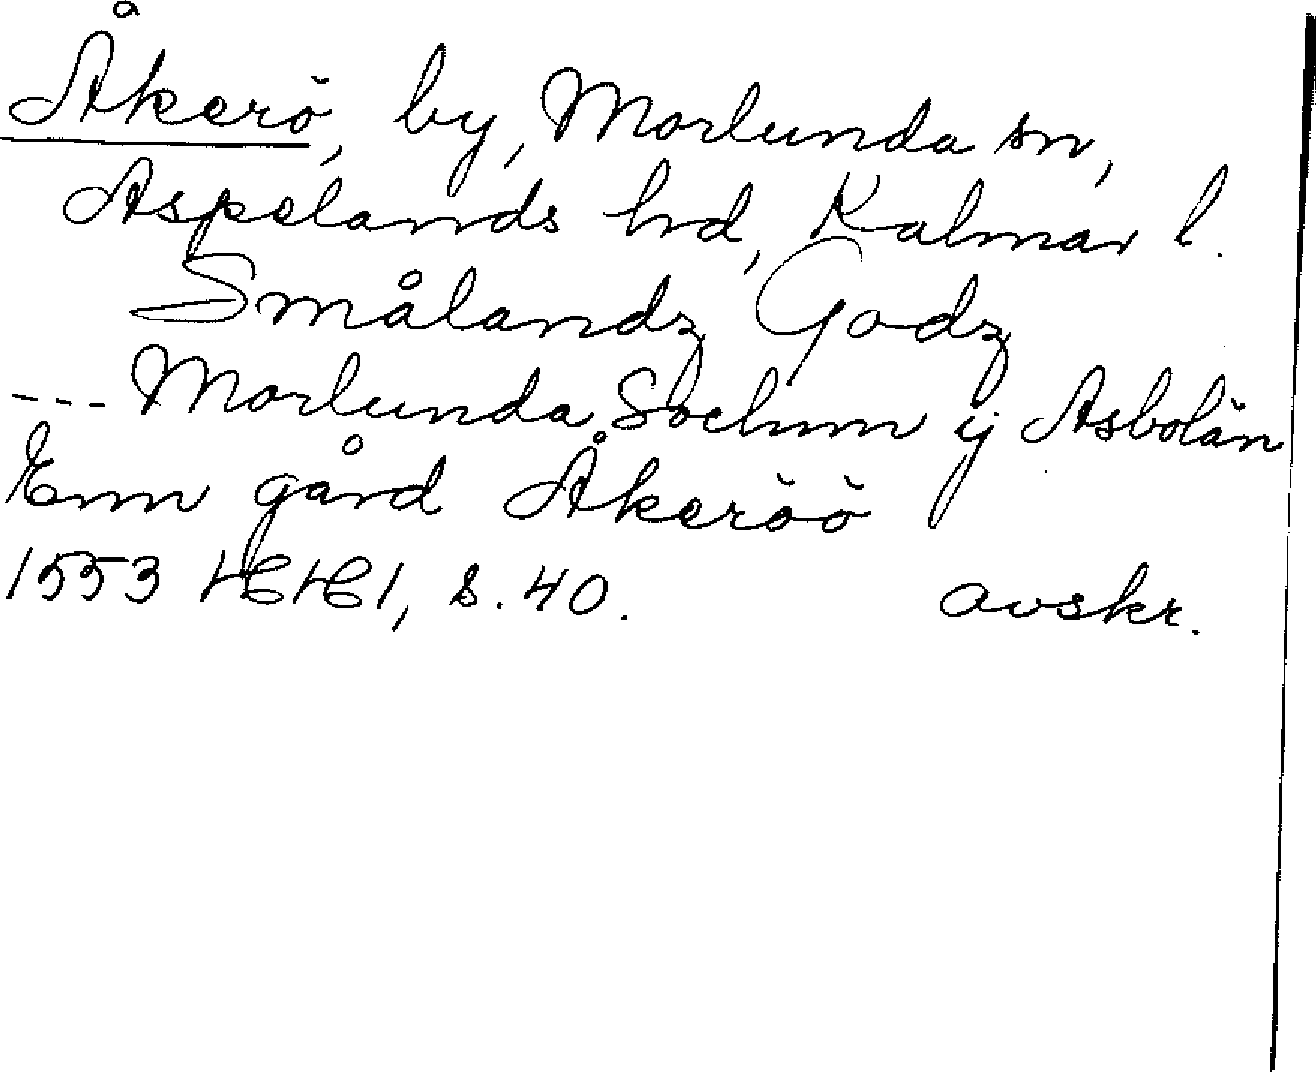 Åkerö, by, Mörlunda sn,
Aspelands hd, Kalmar l.
Smålandz Godz
--- Morlunda Sochnn ij Asbolän
Enn gård Åkeröö
1553 s. 40. avskr.